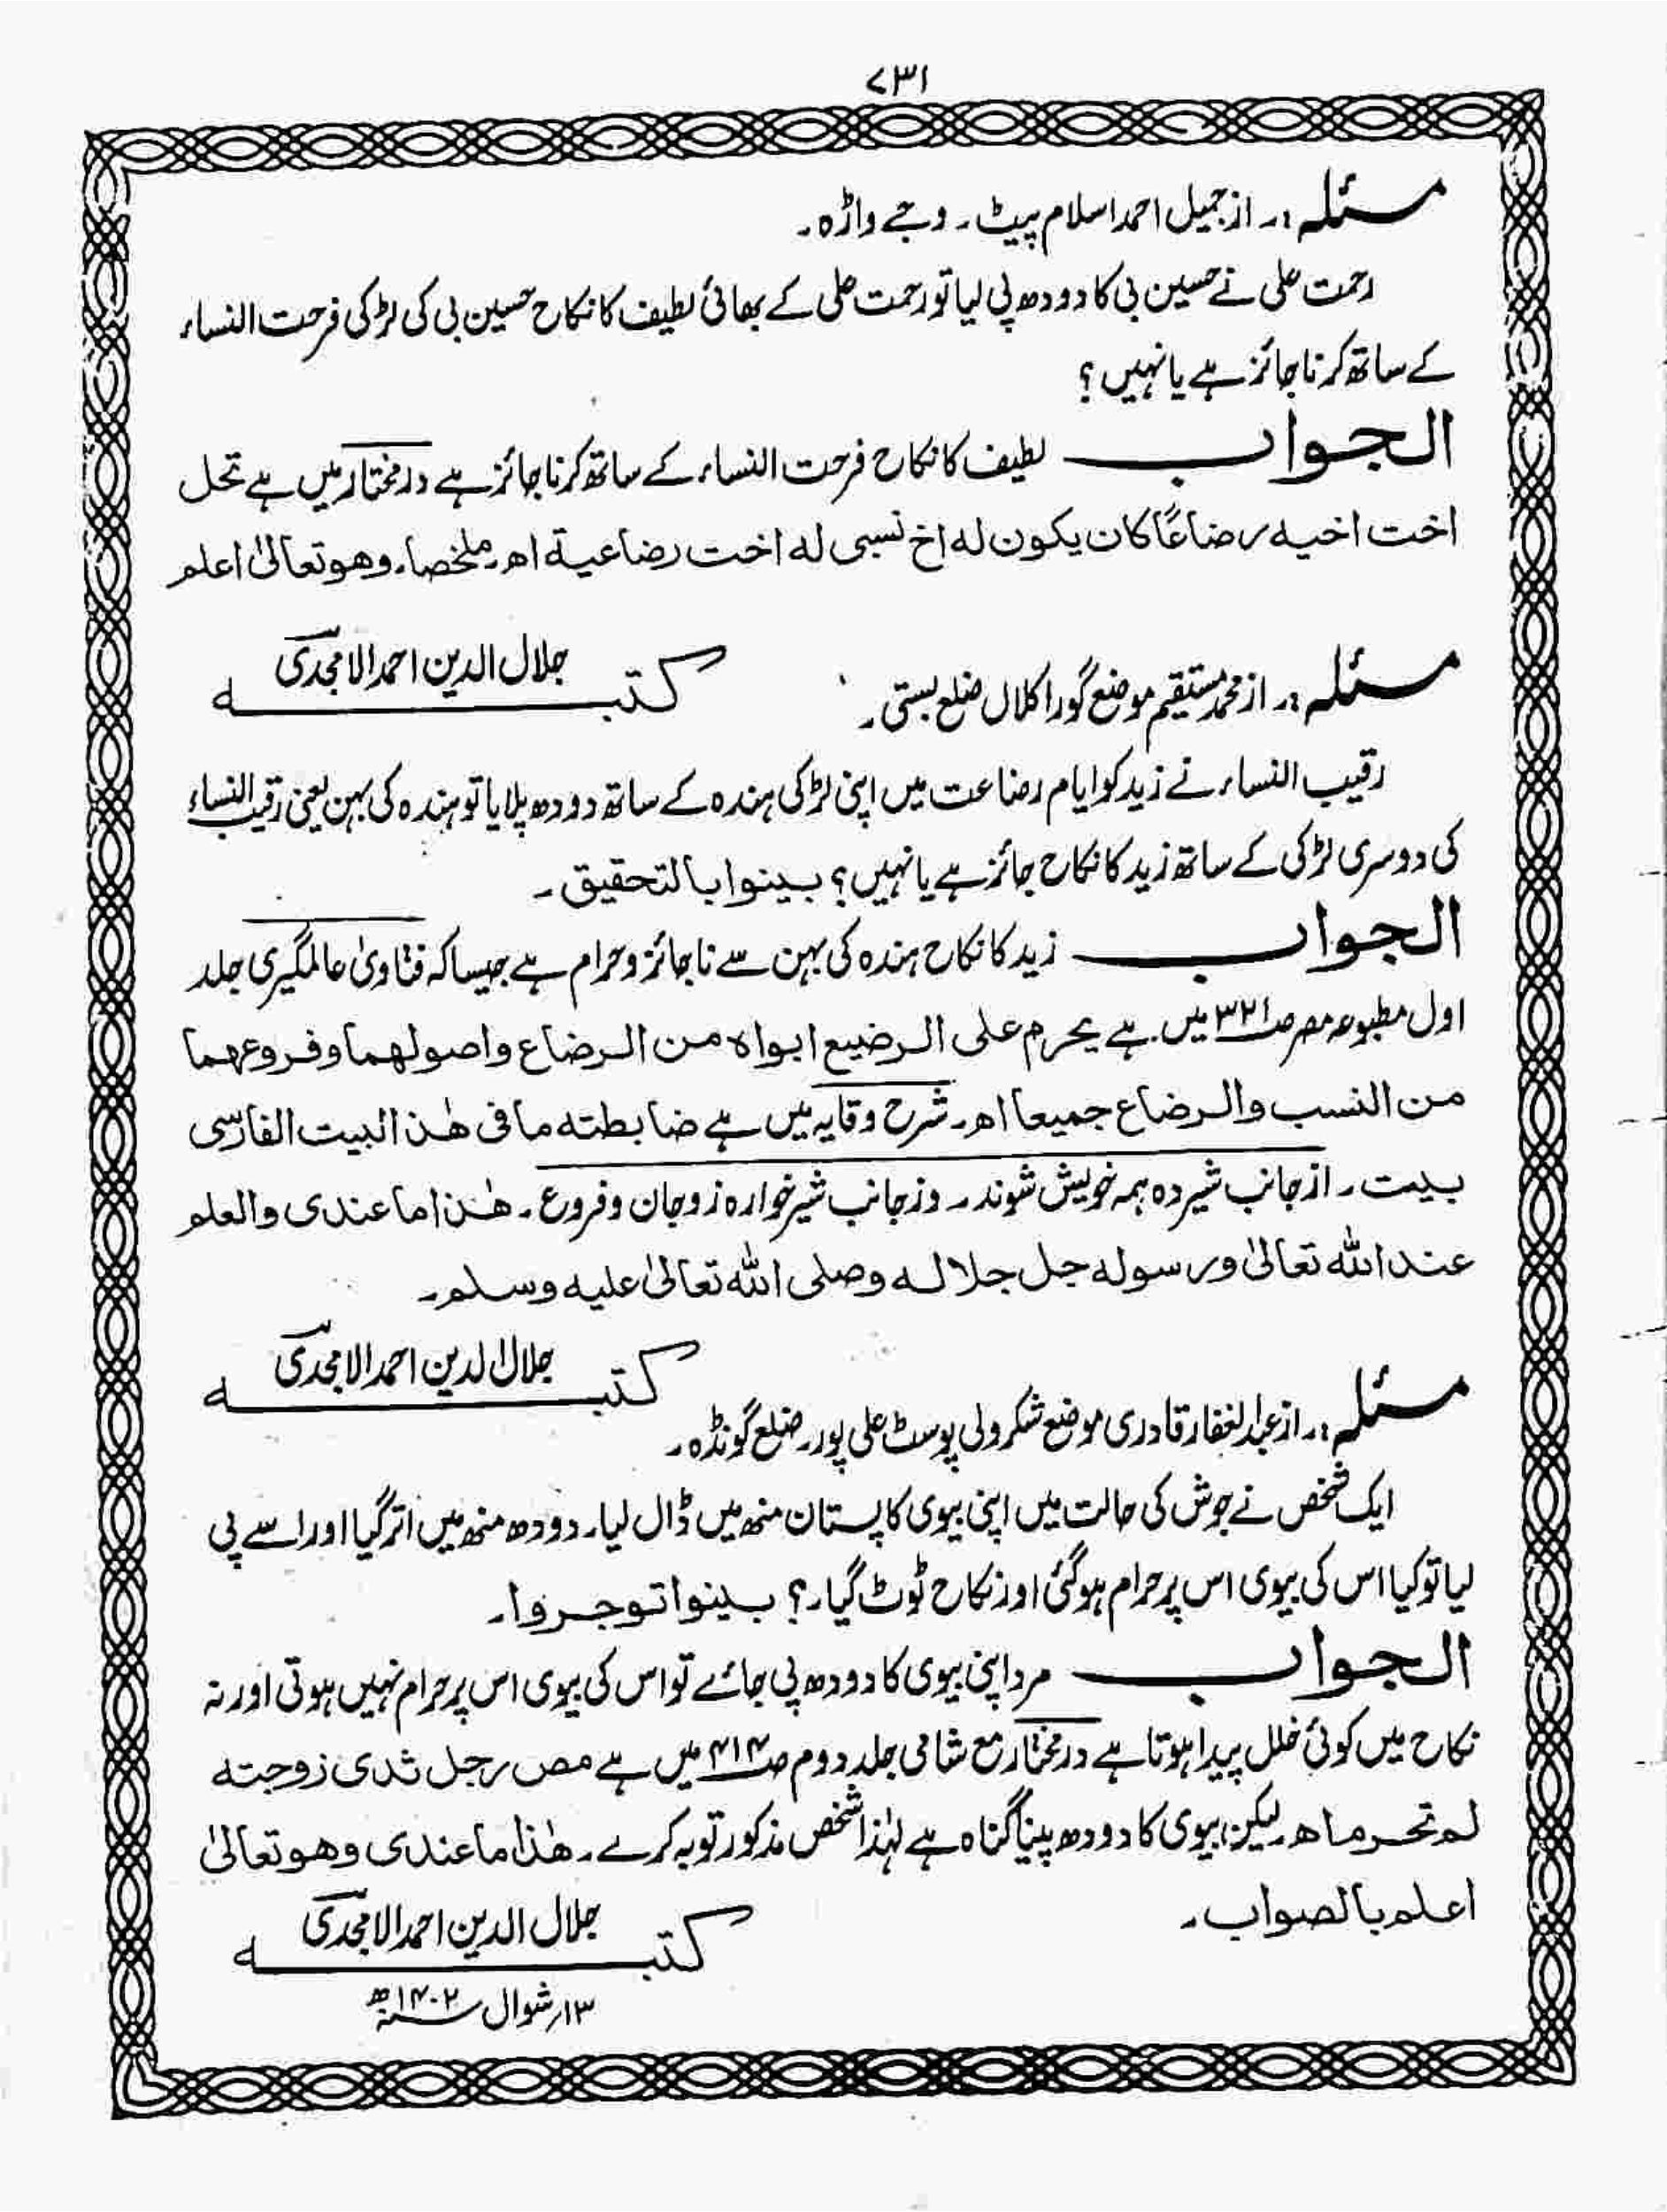 ۷۳۱
مسئلہ :۔ از جمیل احمد اسلام پیٹ۔ وجے واڑہ۔
رحمت علی نے حسین بی کا دودھ پی لیا تو رحمت علی کے بھائی لطیف کا نکاح حسین بی کی لڑکی فرحت النساء
کے ساتھ کرنا جائز ہے یا نہیں؟
الجواب لطیف کا نکاح فرحت النساء کے ساتھ کرنا جائز ہے درمختار میں ہے تحل
اخت اخیہ رضاعًا کان یکون لہ اخ نسبی لہ اخت رضاعیة اھ۔ ملخصا، وھو تعالیٰ اعلم
کتبہ جلال الدین احمد الامجدی
مسئلہ :۔ از محمد مستقیم موضع گورا کلال ضلع بستی۔
رقیب النساء نے زید کو ایام رضاعت میں اپنی لڑکی ہندہ کے ساتھ دودھ پلایا تو ہندہ کی بہن یعنی رقیب النساء
کی دوسری لڑکی کے ساتھ زید کا نکاح جائز ہے یا نہیں؟ بینوا بالتحقیق۔
الجواب زید کا نکاح ہندہ کی بہن سے ناجائز و حرام ہے جیسا کہ فتاویٰ عالمگیری جلد
اول مطبوعہ مصر ص۳۲۱ میں ہے یحرم علی الرضیع ابواہ من الرضاع واصولھما وفروعھما
من النسب والرضاع جمیعا اھ۔ شرح وقایہ میں ہے ضابطتہ ما فی ھٰذا البیت الفارسی
بیت۔ از جانب شیردہ ہمہ خویش شوند۔ وز جانب شیر خوارہ زوجان و فروع۔ ھٰذا ما عندی والعلم
عند اللّٰہ تعالیٰ ورسولہ جل جلالہ وصلی اللّٰہ تعالیٰ علیہ وسلم۔
کتبہ جلال الدین احمد الامجدی
مسئلہ :۔ از عبدالغفار قادری موضع شکرولی پوسٹ علی پور۔ ضلع گونڈہ۔
ایک شخص نے جوش کی حالت میں اپنی بیوی کا پستان منھ میں ڈال لیا۔ دودھ منھ میں اتر گیا اور اسے پی
لیا تو کیا اس کی بیوی اس پر حرام ہوگئی اور نکاح ٹوٹ گیا۔؟ بینوا توجروا۔
الجواب مرد اپنی بیوی کا دودھ پی جائے تو اس کی بیوی اس پر حرام نہیں ہوتی اور نہ
نکاح میں کوئی خلل پیدا ہوتا ہے درمختار مع شامی جلد دوم ص۴۱۴ میں ہے مص رجل ثدی زوجتہ
لم تحرم اھ۔ لیکن بیوی کا دودھ پینا گناہ ہے لہٰذا شخص مذکور توبہ کرے۔ ھٰذا ما عندی وھو تعالیٰ
اعلم بالصواب۔
کتبہ جلال الدین احمد الامجدی
۱۳؍ شوال سنہ ۱۴۰۲ھ